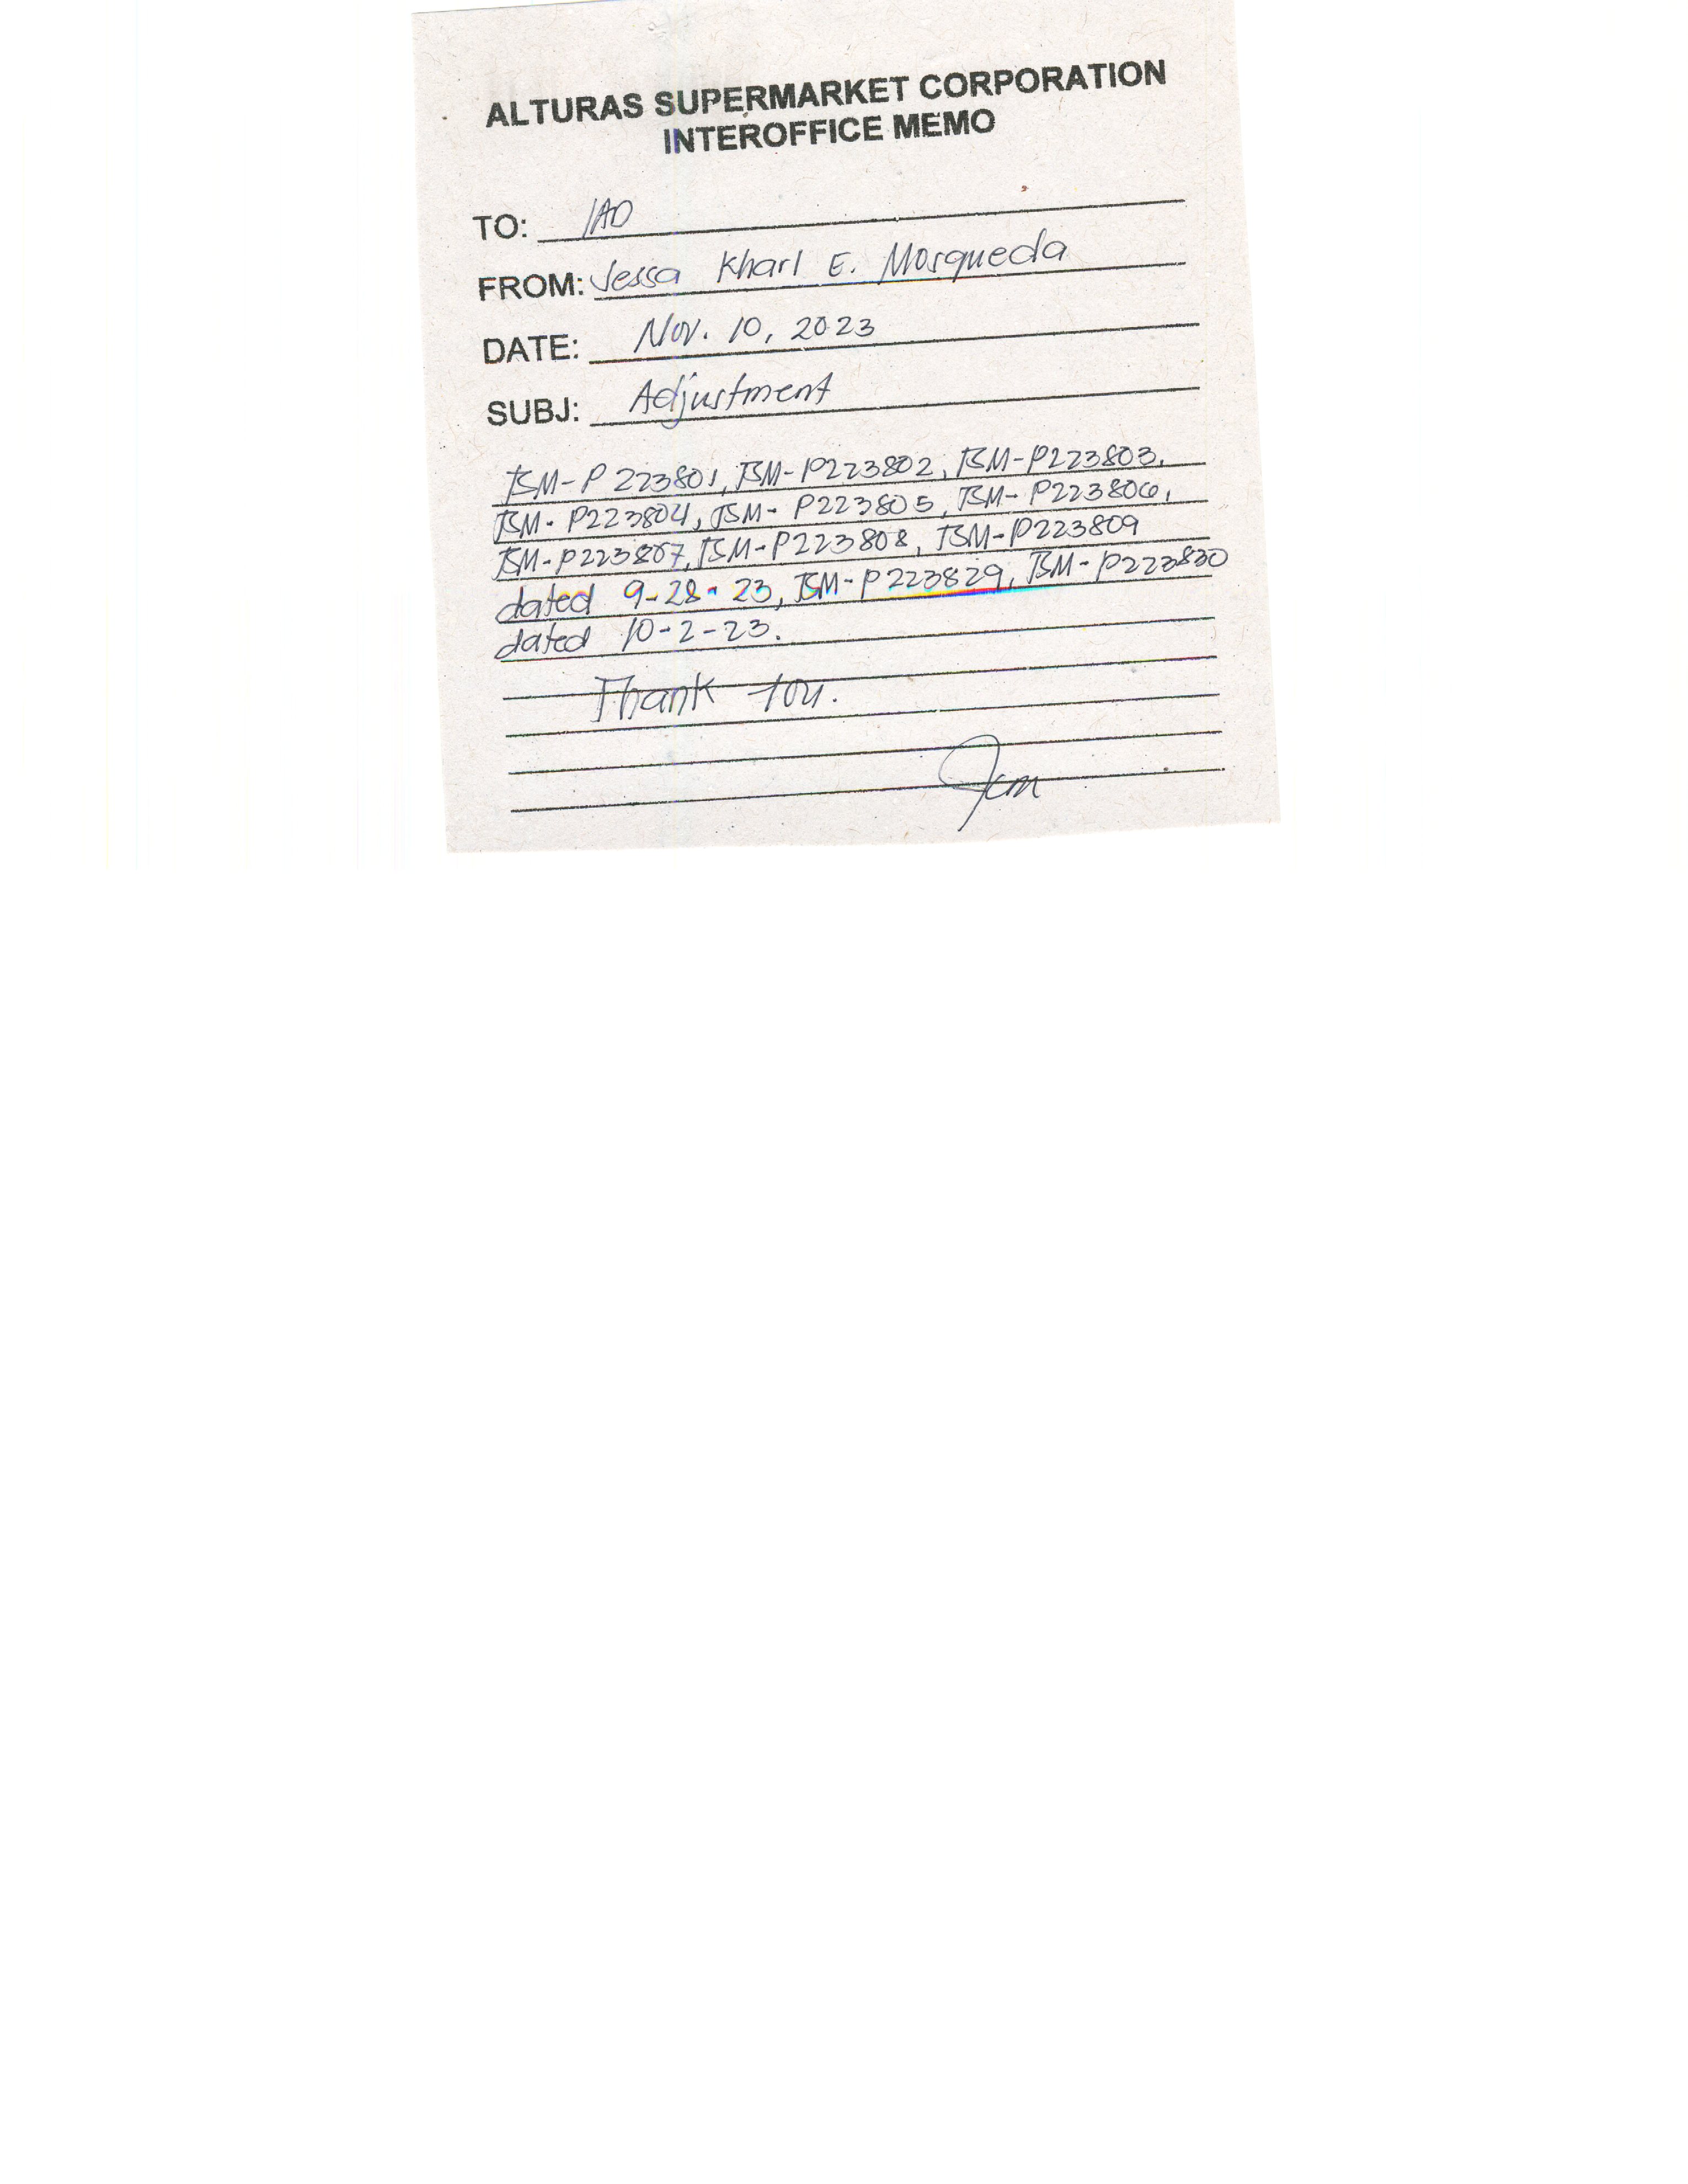 ALTURAS SUPERMARKET CORPORATION
INTEROFFICE MEMO
TO: IAD
FROM: Jessa Kharl E. Mosqueda
DATE: Nov. 10, 2023
SUBJ: Adjustment
TSM-P223801, TSM-P223802, TSM-P223803,
TSM-P223804, TSM-P223805, TSM-P223806,
TSM-P223807, TSM-P223808, TSM-P223809
dated 9-28-23, TSM-P223829, TSM-P223830
dated 10-2-23.
Thank You.